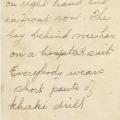 on right hand end
in front row. The
boy behind me has
on a hospital suit
Everybody wears
short pants of
khaki drill